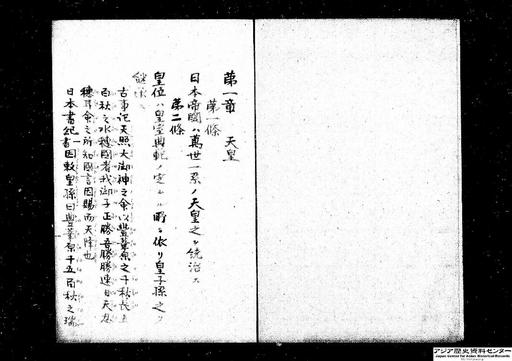 第一章　天皇
第一條
日本帝國ハ萬世一系ノ天皇之ヲ統治ス
第二條
皇位ハ皇室典範ノ定ムル所ニ依リ皇子孫之ヲ
繼承ス
古事記天照大御神之命以豊葦原之千秋長五
百秋之水穂國者我御子正勝吾勝勝速日天忍
穂耳命之所知國言因賜而天降也
日本書紀一書因勅皇孫曰葦原千五百秋之瑞
アジア歴史資料センター
Japan Center for Asian Historical Records